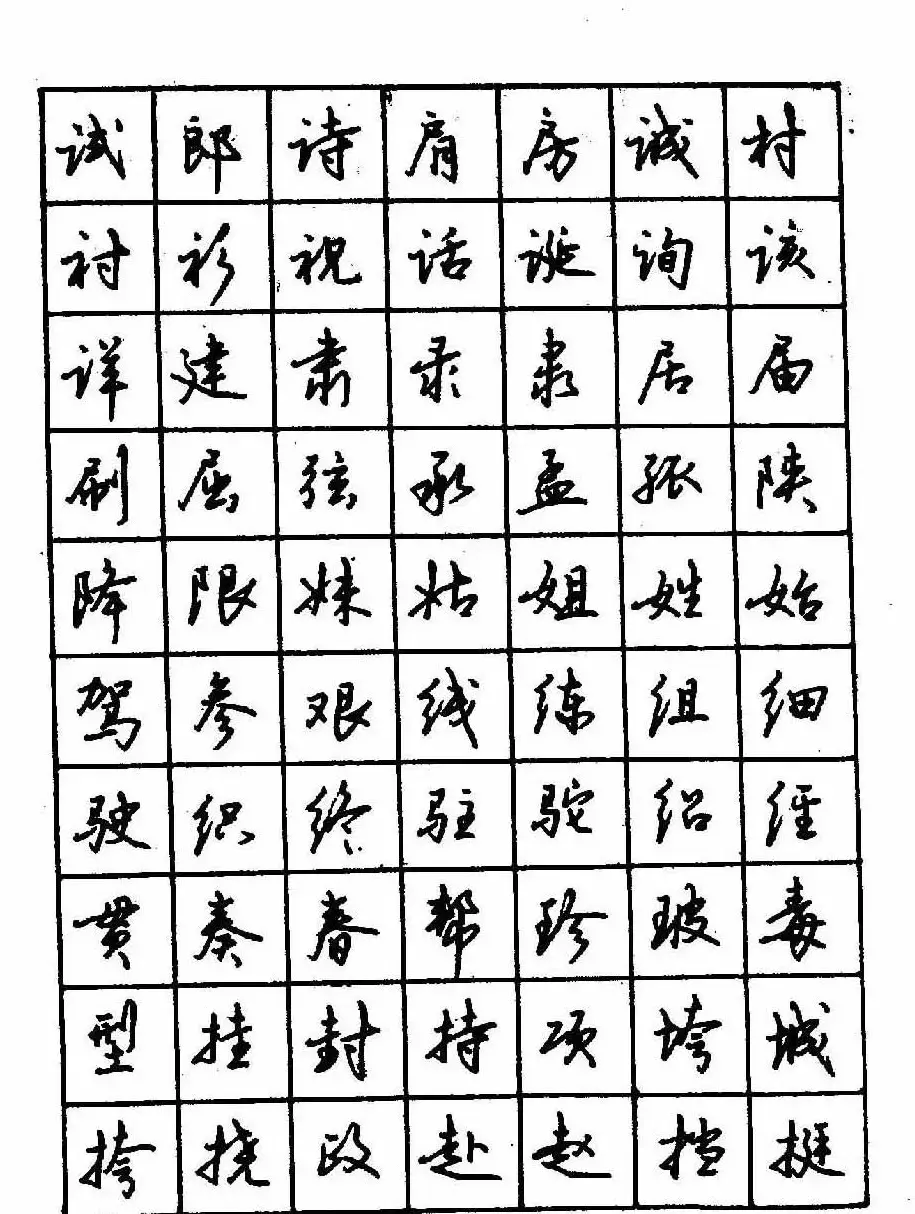 试郎诗肩房诚村
衬衫祝话诞询该
详建肃录隶居届
刷屈弦承孟孤陕
降限妹姑姐姓始
驾参艰线练组细
驶织终驻驼绍经
贯奏春帮珍玻毒
型挂封持项垮城
挎挠政赴赵挡挺